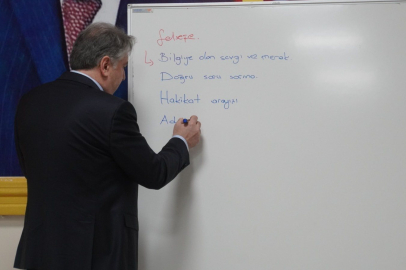 felsefe.
↳ Bilgiye olan sevgi ve merak.
Doğru soru sorma.
Hakikat arayışı